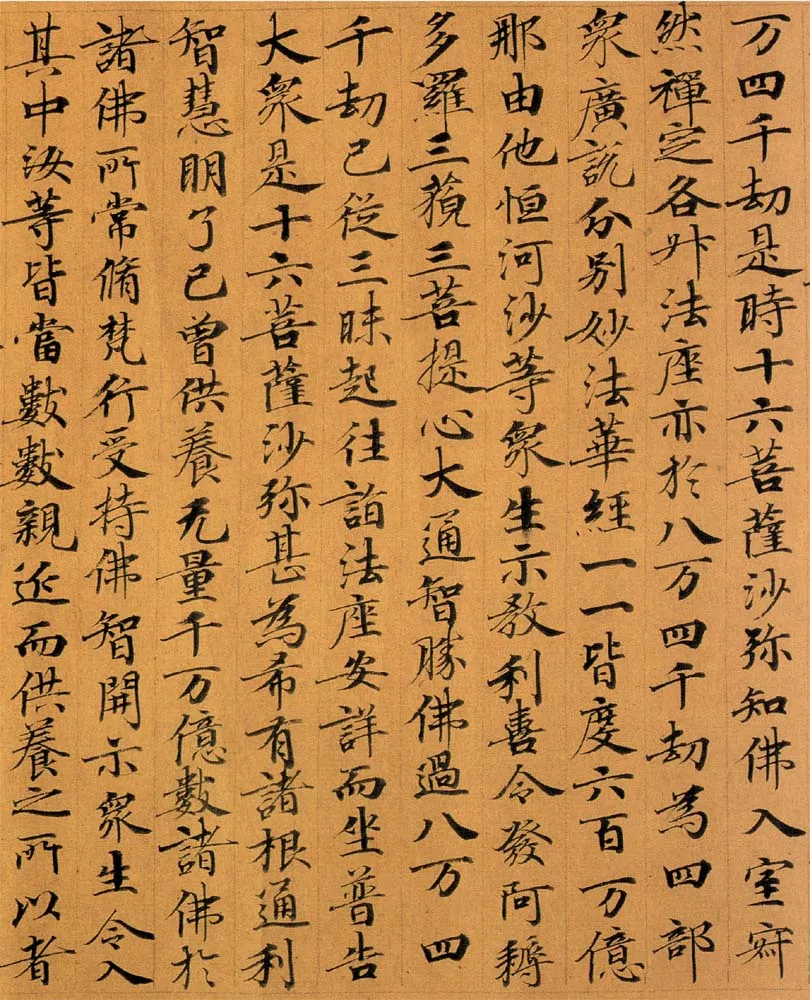 万四千劫是時十六菩薩沙弥知佛入室寂
然禪定各升法座亦於八万四千劫為四部
衆廣說分别妙法華經一一皆度六百万億
那由他恒河沙等衆生示教利喜令發阿耨
多羅三藐三菩提心大通智勝佛過八万四
千劫已從三昧起往詣法座安詳而坐普告
大衆是十六菩薩沙弥甚為希有諸根通利
智慧明了已曾供養无量千万億數諸佛於
諸佛所常脩梵行受持佛智開示衆生令入
其中汝等皆當數數親近而供養之所以者